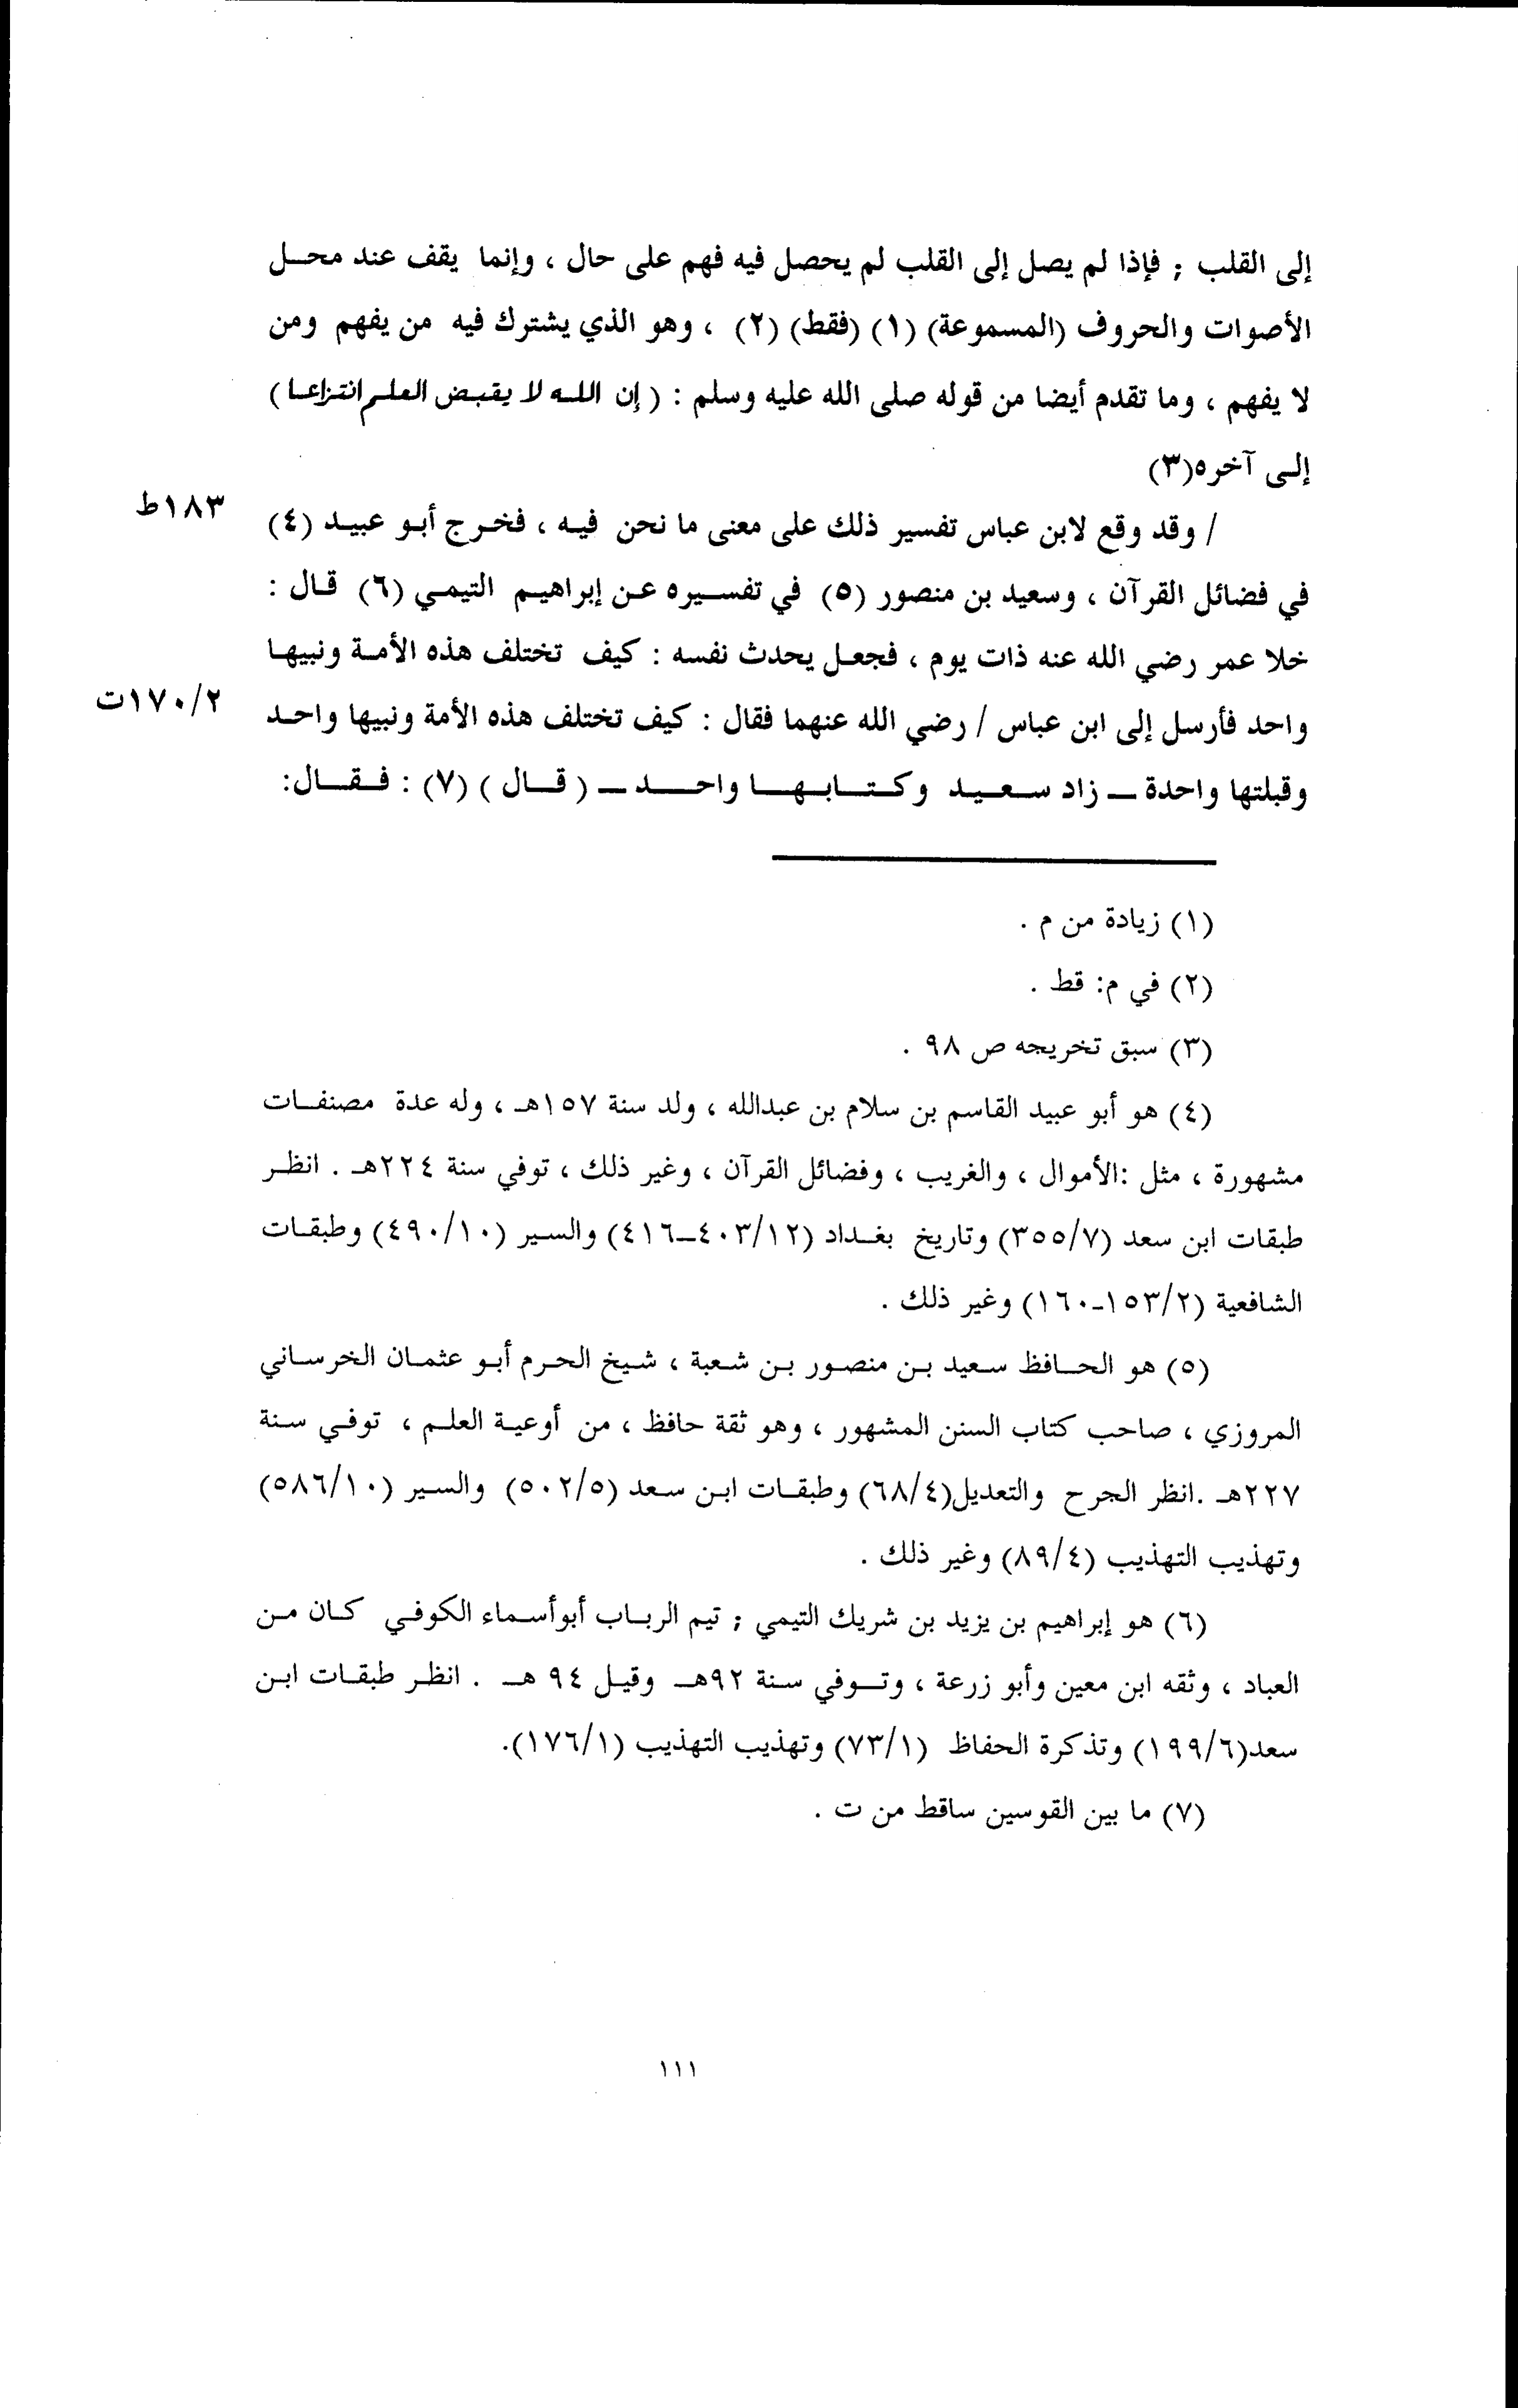 إلى القلب ; فإذا لم يصل إلى القلب لم يحصل فيه فهم على حال ، وإنما يقف عند محـل
الأصوات والحروف (المسموعة) (١) (فقط) (٢) ، وهو الذي يشترك فيه من يفهم ومن
لا يفهم ، وما تقدم أيضا من قوله صلى الله عليه وسلم : ( إن الله لا يقبض العلم انتزاعا )
إلى آخره(٣)
١٨٣ط
/ وقد وقع لابن عباس تفسير ذلك على معنى ما نحن فيه ، فخرج أبو عبيد (٤)
في فضائل القرآن ، وسعيد بن منصور (٥) في تفسيره عن إبراهيم التيمي (٦) قال :
خلا عمر رضي الله عنه ذات يوم ، فجعل يحدث نفسه : كيف تختلف هذه الأمة ونبيها
١٧٠/٢ت
واحد فأرسل إلى ابن عباس / رضي الله عنهما فقال : كيف تختلف هذه الأمة ونبيها واحد
وقبلتها واحدة ــ زاد سعيد وكتابها واحد ــ ( قال ) (٧) : فقال:
(١) زيادة من م .
(٢) في م: قط .
(٣) سبق تخريجه ص ٩٨ .
(٤) هو أبو عبيد القاسم بن سلام بن عبدالله ، ولد سنة ١٥٧هـ ، وله عدة مصنفات
مشهورة ، مثل :الأموال ، والغريب ، وفضائل القرآن ، وغير ذلك ، توفي سنة ٢٢٤هـ . انظر
طبقات ابن سعد (٣٥٥/٧) وتاريخ بغداد (٤٠٣/١٢ــ٤١٦) والسير (٤٩٠/١٠) وطبقات
الشافعية (١٥٣/٢ـ١٦٠) وغير ذلك .
(٥) هو الحافظ سعيد بن منصور بن شعبة ، شيخ الحرم أبو عثمان الخرساني
المروزي ، صاحب كتاب السنن المشهور ، وهو ثقة حافظ ، من أوعية العلم ، توفي سنة
٢٢٧هـ .انظر الجرح والتعديل(٦٨/٤) وطبقات ابن سعد (٥٠٢/٥) والسير (٥٨٦/١٠)
وتهذيب التهذيب (٨٩/٤) وغير ذلك .
(٦) هو إبراهيم بن يزيد بن شريك التيمي ; تيم الرباب أبوأسماء الكوفي كان من
العباد ، وثقه ابن معين وأبو زرعة ، وتوفي سنة ٩٢هـ وقيل ٩٤ هـ . انظر طبقات ابن
سعد(١٩٩/٦) وتذكرة الحفاظ (٧٣/١) وتهذيب التهذيب (١٧٦/١).
(٧) ما بين القوسين ساقط من ت .
١١١